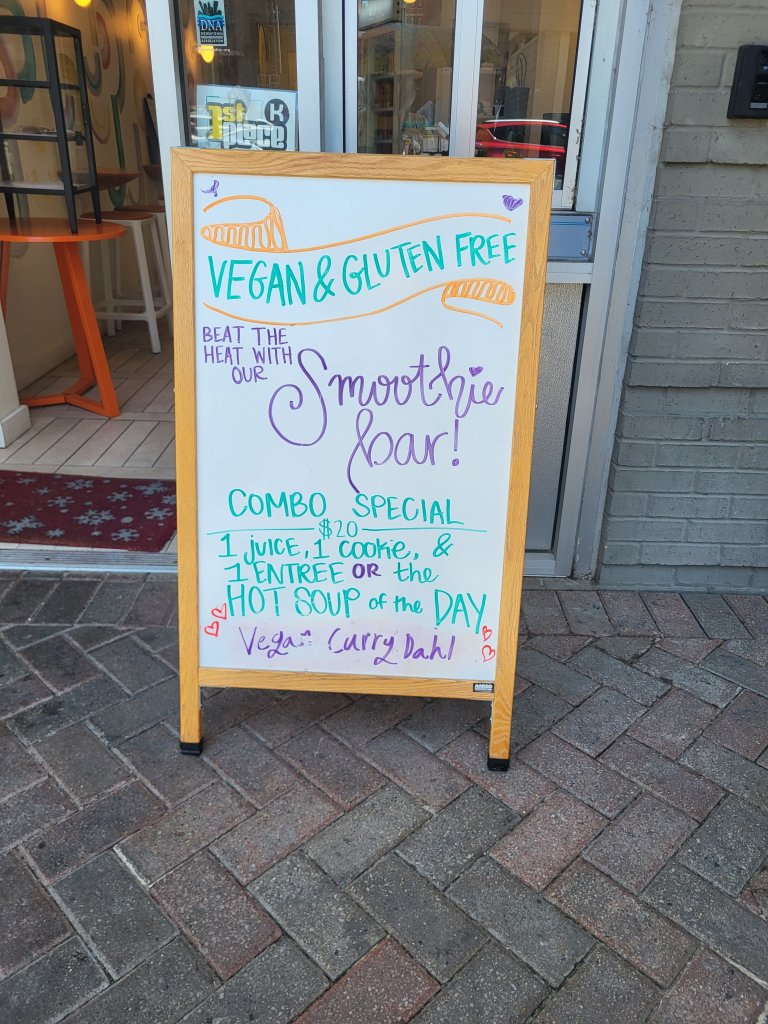 DNA
1st
Place
K
VEGAN & GLUTEN FREE
BEAT THE
HEAT WITH
OUR
Smoothie
bar!
COMBO SPECIAL
$20
1 JUICE, 1 COOKIE, &
1 ENTREE OR the
HOT SOUP of the DAY
Vegan Curry Dahl